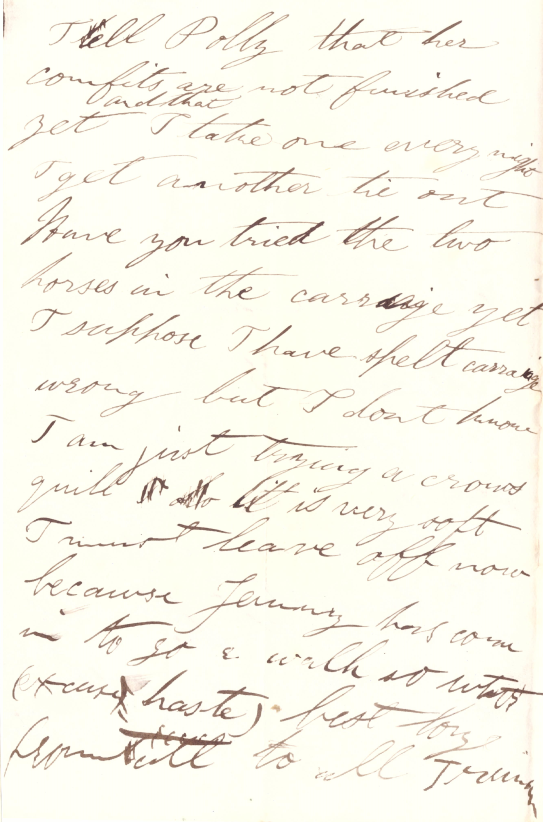 Tell Polly that her
comfits are not finished
and that
yet I take one every night
I get another tie out
Have you tried the two
horses in the carraige yet
I suppose I have spelt carraige
wrong but I dont know
I am just trying a crows
quill it is very soft
I must leave off now
because Jenny has come
in to go a walk so
(excuse haste) best love
from all to all